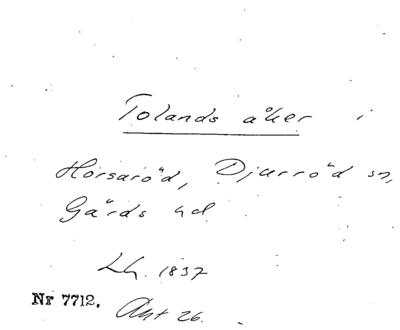 Tolands åker i
Horsaröd, Djurröd sn,
Gärds hd
Lh. 1837
Nr 7712. Akt 26.